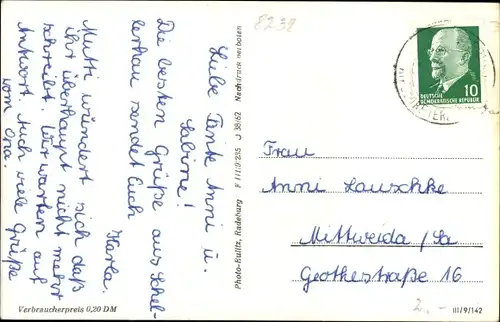 8238
Liebe Tante Anni u.
Sabine!
Die besten Grüße aus Schel-
lerhau sendet Euch
Karla.
Mutti wundert sich daß
ihr überhaupt nicht mehr
schreibt. Wir warten auf
Antwort. Auch viele Grüße
vom Opa.
Verbraucherpreis 0,20 DM
Photo-Kulitz, Radeburg F 111/9/235 J 38/62 Nachdruck verboten
DEUTSCHE
DEMOKRATISCHE REPUBLIK
10
Frau
Anni Lauschke
Mittweida /Sa
Goethestraße 16
2,-
III/9/142